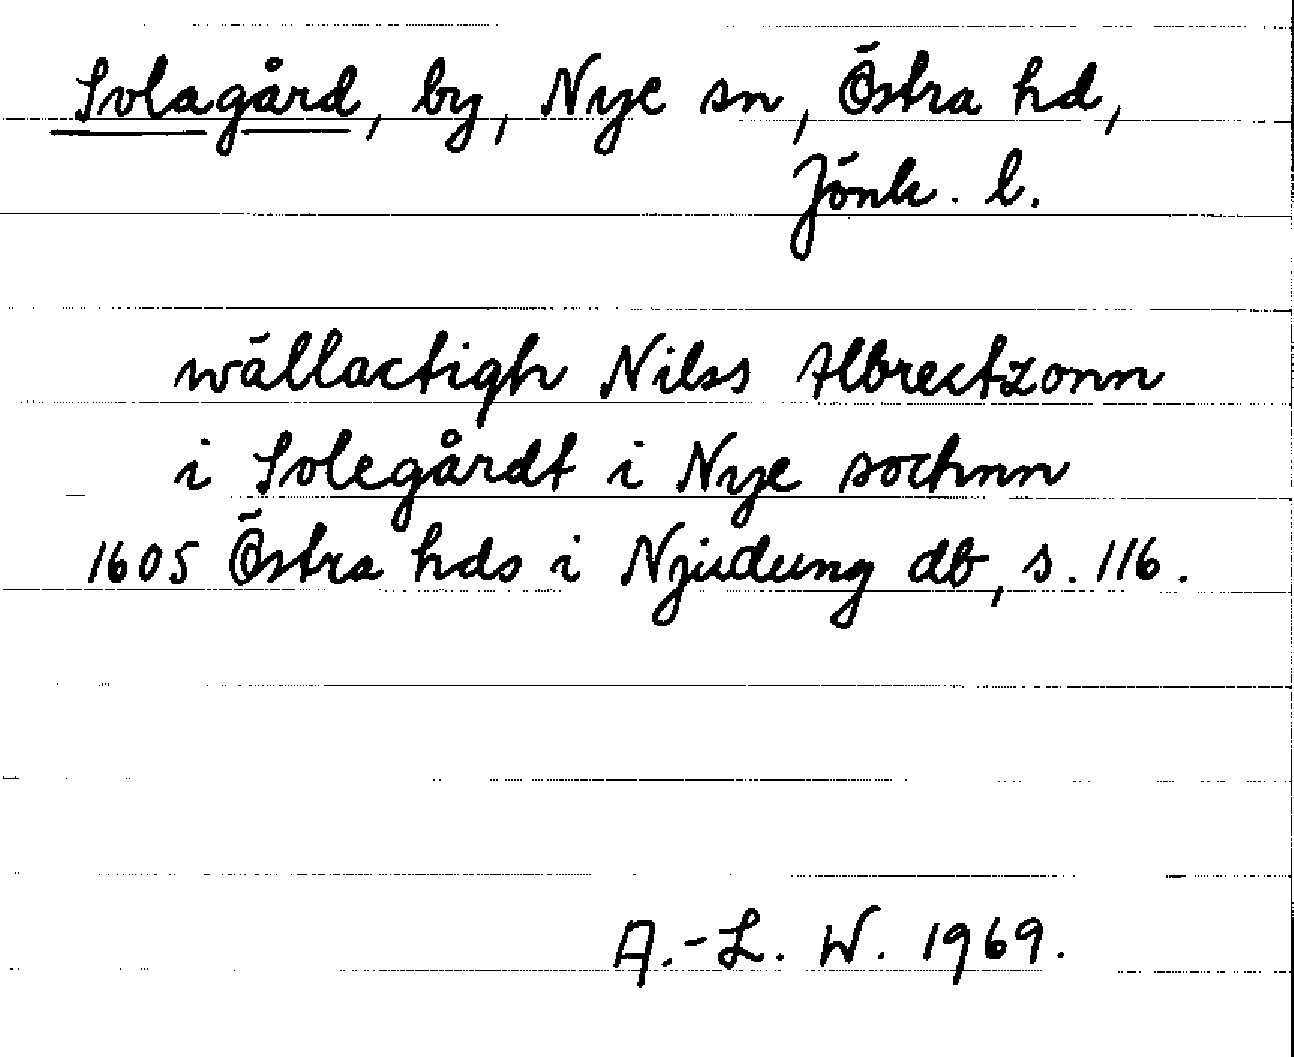 Solagård, by, Nye sn, Östra hd,
Jönk. l.
wällactigh Nilss Albrectzonn
i Solegårdt i Nye sochnn
1605 Östra hds i Njudung db, s. 116.
A.-L. W. 1969.